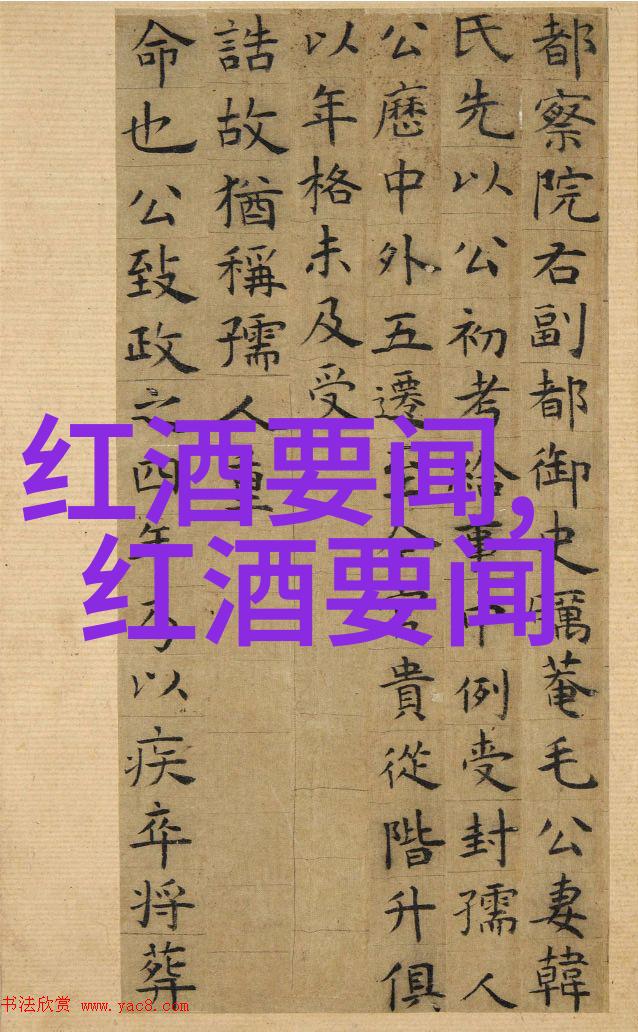 都察院右副都御史厲菴毛公妻韓
氏先以公初考給事中例受封孺人
公歷中外五遷至官貴從階升俱
以年格未及受
誥故猶稱孺人重
命也公致政之四年乃以疾卒将葬
红酒要闻,
红酒要闻
书法欣赏 www.yac8.com